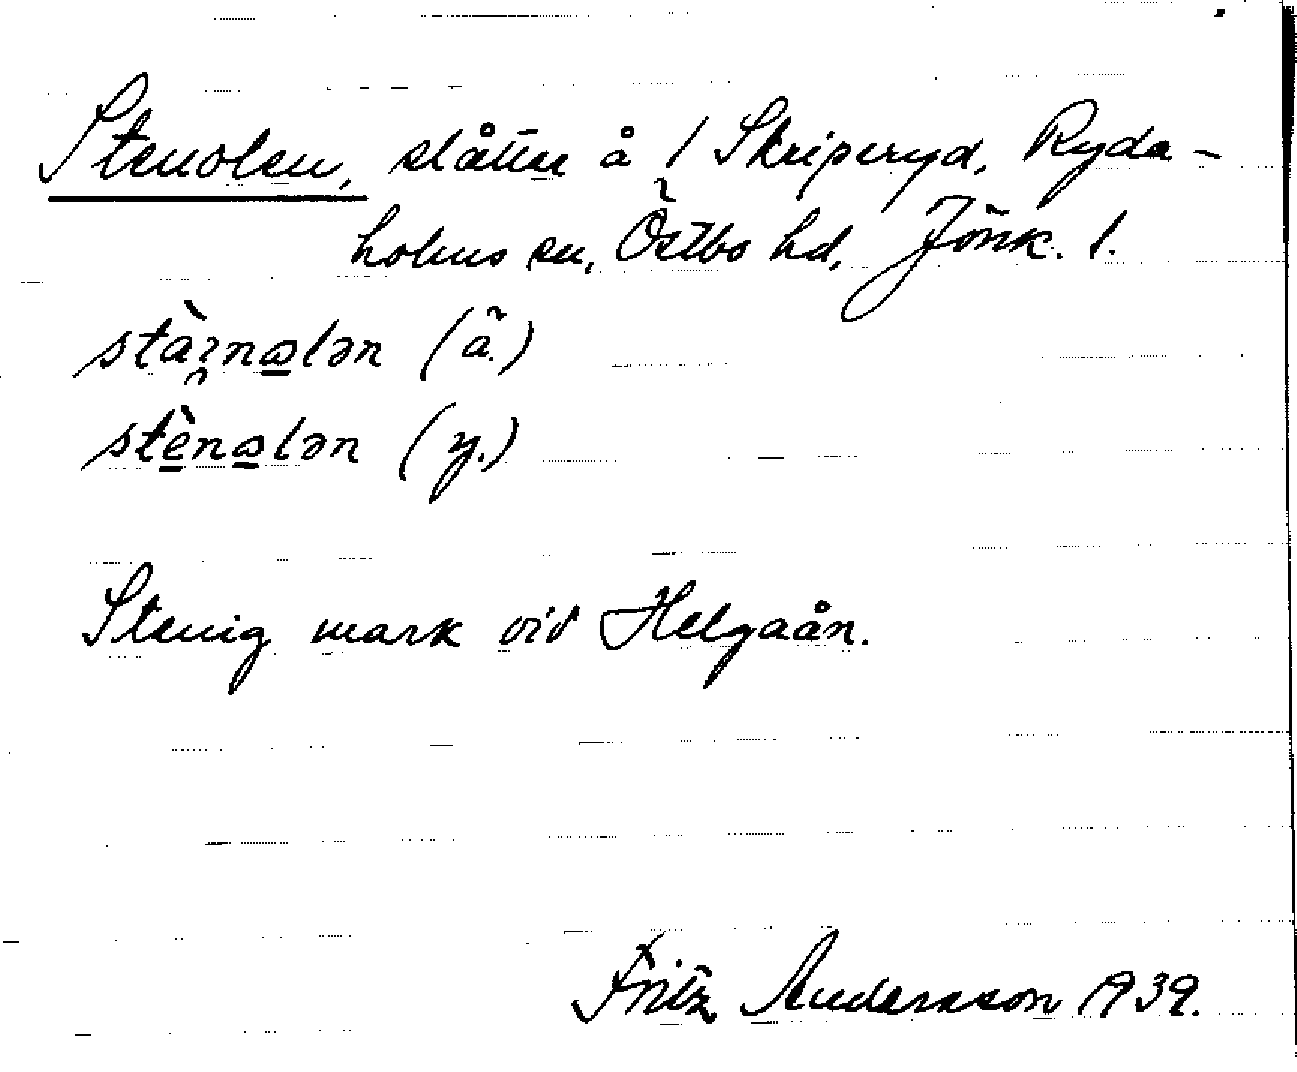 Stenolen, slåtter å 1 Skriperyd, Ryda-
holms sn, Östbo hd, Jönk. l.
stàinωlən (ä.)
stènωlən (y.)
Stenig mark vid Helgaån.
Fritz Andersson 1939.